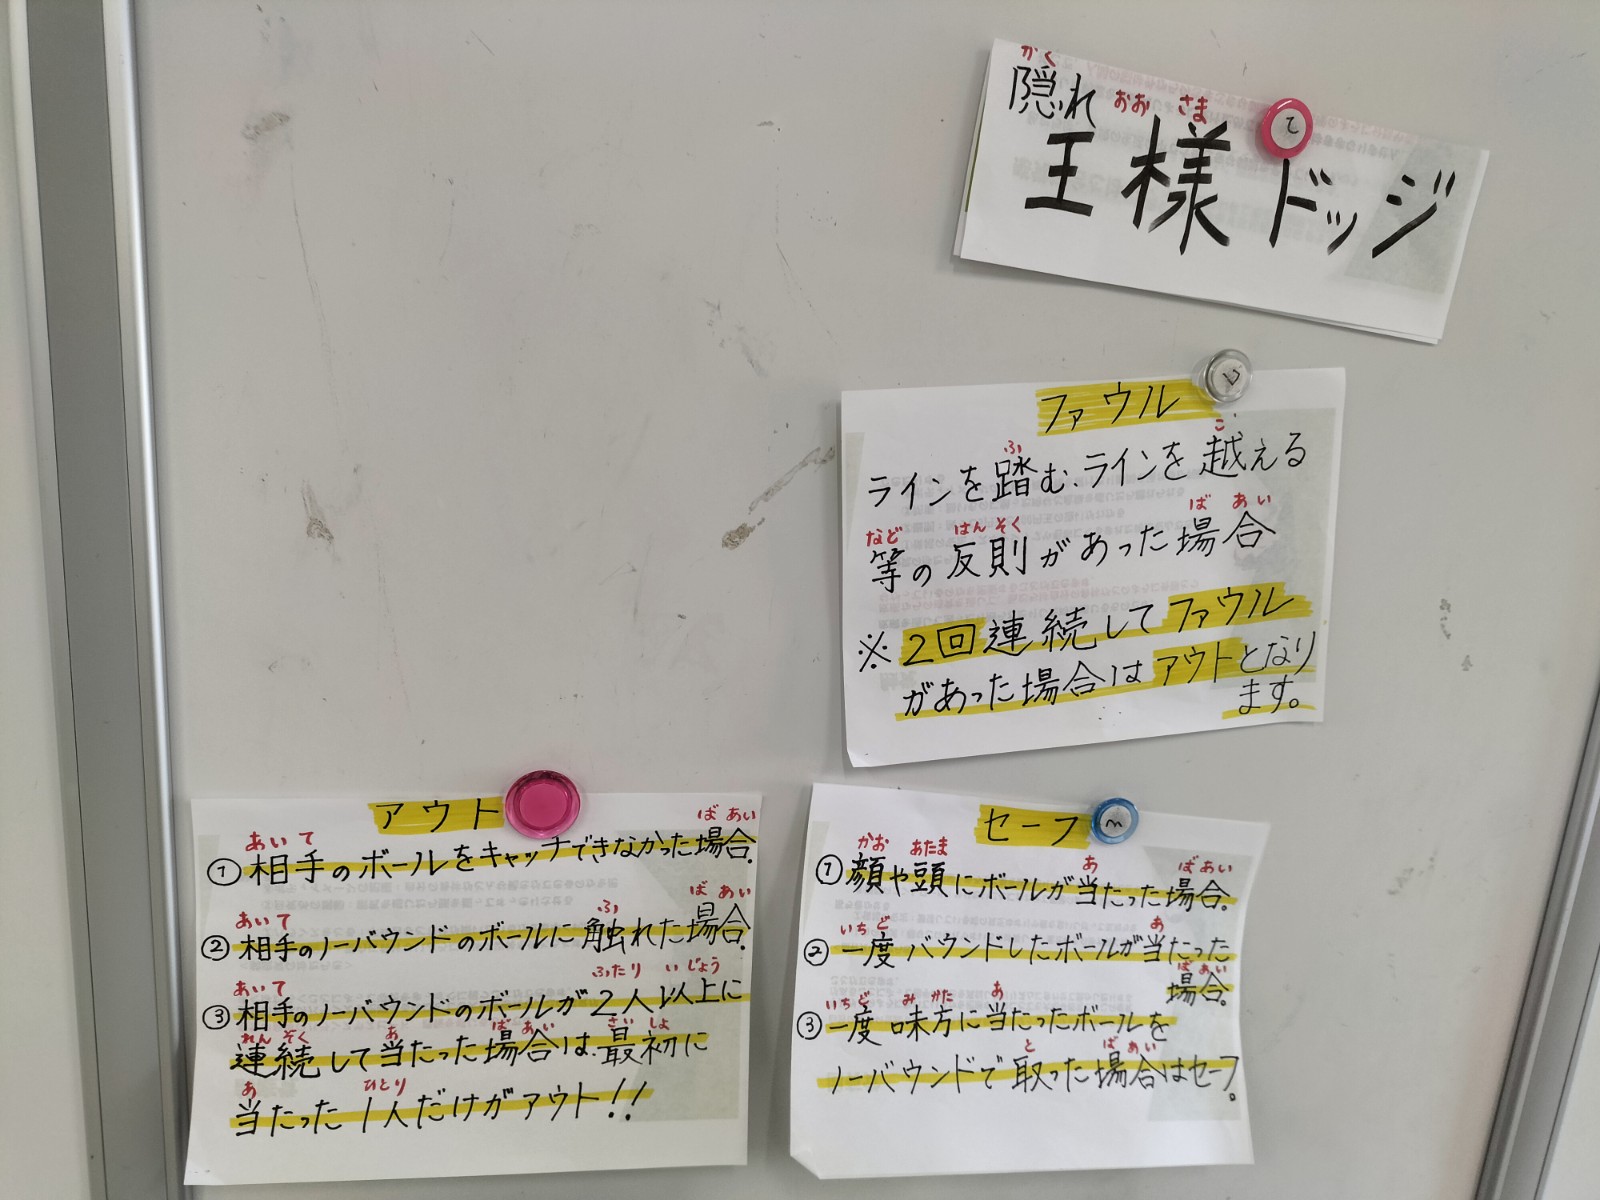 かく
隠れ
おお さま
王様ドッジ
ファウル
ふ こ
ラインを踏む、ラインを越える
など はんそく ばあい
等の反則があった場合
※2回連続してファウル
があった場合はアウトとなり
ます。
アウト
あいて ばあい
①相手のボールをキャッチできなかった場合。
あいて ふ ばあい
②相手のノーバウンドのボールに触れた場合。
あいて ふたり いじょう
③相手のノーバウンドのボールが2人以上に
れんぞく あ ばあい さいしょ
連続して当たった場合は、最初に
あ ひとり
当たった1人だけがアウト!!
セーフ
かお あたま あ ばあい
①顔や頭にボールが当たった場合。
いちど あ
②一度バウンドしたボールが当たった
ばあい
場合。
いちど みかた あ
③一度味方に当たったボールを
と ばあい
ノーバウンドで取った場合はセーフ。